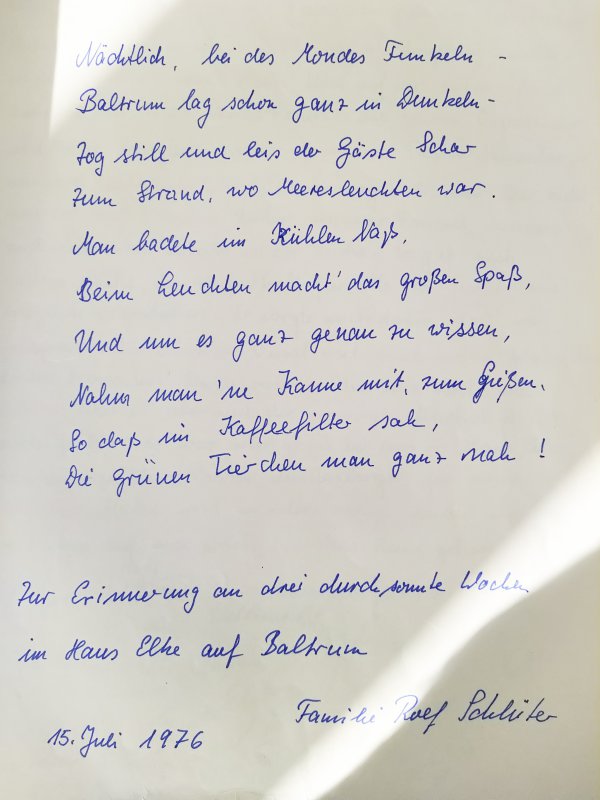 Nächtlich, bei des Mondes Funkeln -
Baltrum lag schon ganz in Dunkeln -
Zog still und leis der Gäste Schar
zum Strand, wo Meeresleuchten war.
Man badete im Kühlen Naß,
Beim Leuchten macht' das großen Spaß,
Und um es ganz genau zu wissen,
Nahm man 'ne Kanne mit, zum Gießen.
So daß im Kaffeefilter sah,
Die Grünen Tierchen man ganz nah!
Zur Erinnerung an drei durchsonnte Wochen
im Haus Elke auf Baltrum
Familie Rolf Schlüter
15. Juli 1976